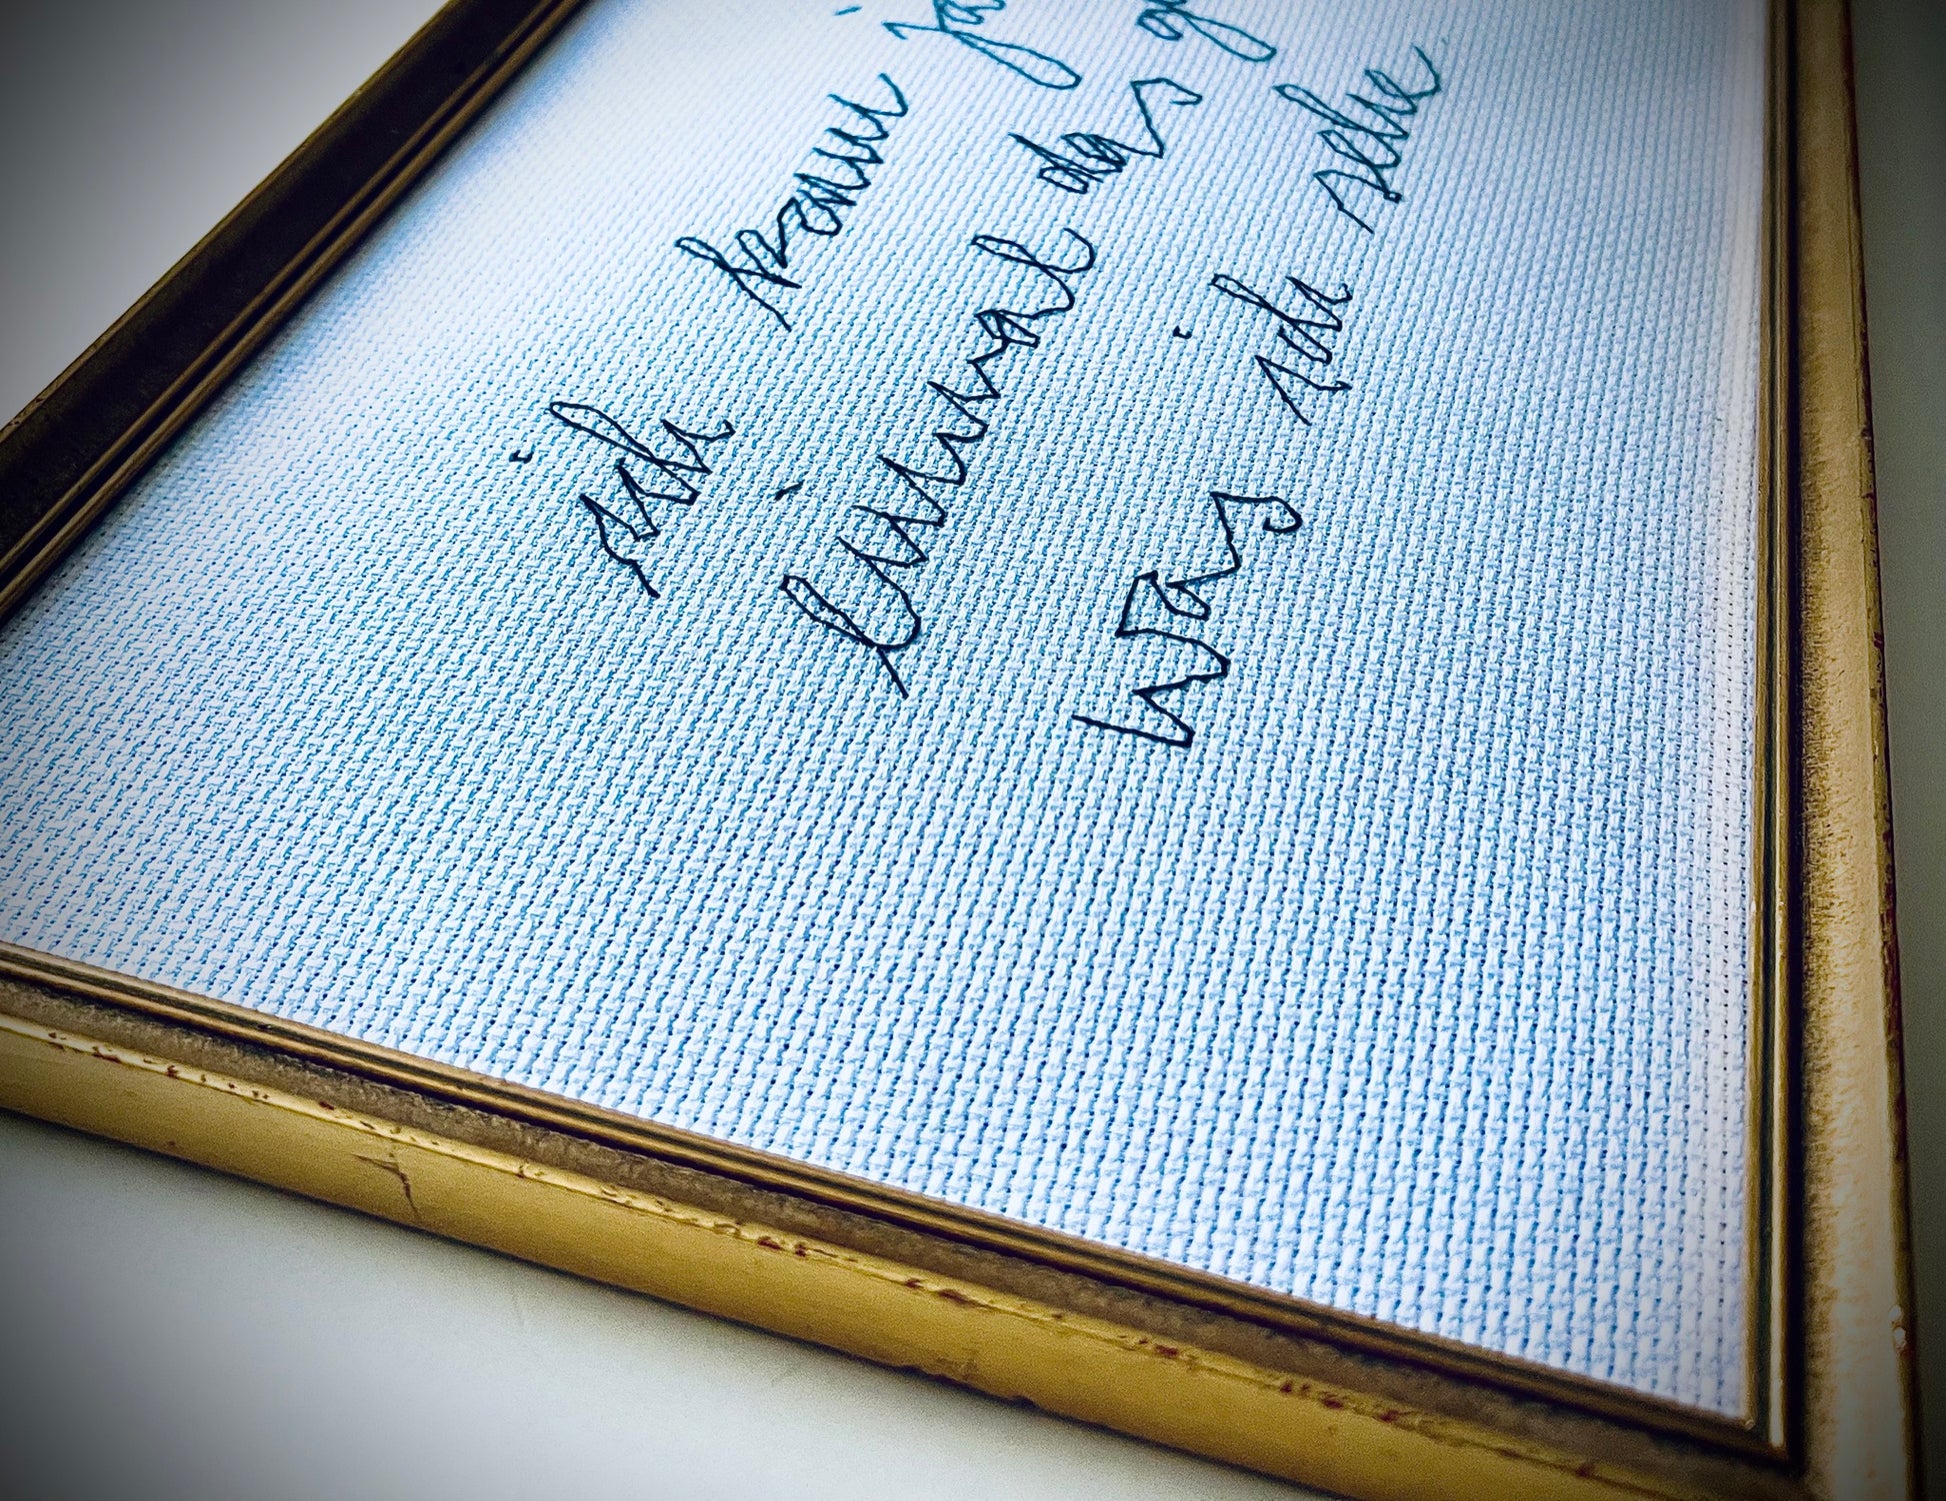 ich kann ja
einmal das
was ich sehe